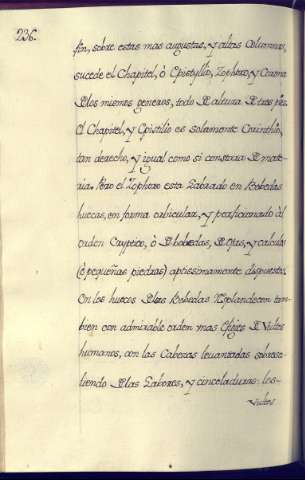 236.
fin, sobre estas mas augustas, y altas Columnas,
sucede el Chapitel, ò Epistylio, Zophoro, y Corona
de los mismos generos, todo de altura de tres pies.
El Chapitel, y Epistilio es solamente Corinthio,
tan derecho, y igual como si constara de mate-
ria. Pero el Zophoro esta labrado en Bobedas
huecas, en forma cubicular, y perficionado àl
orden Cryptico, ò de bobedas, de Opus, y calculos
(ò pequeñas piedras) aptissimamente dispuestos.
En los huecos de las Bobedas resplandecen tam-
bien con admirable orden mas Efigies de Vultos
humanos, con las Cabezas levantadas sobresa-
liendo de las labores, y cinceladuras: los-
Vultos